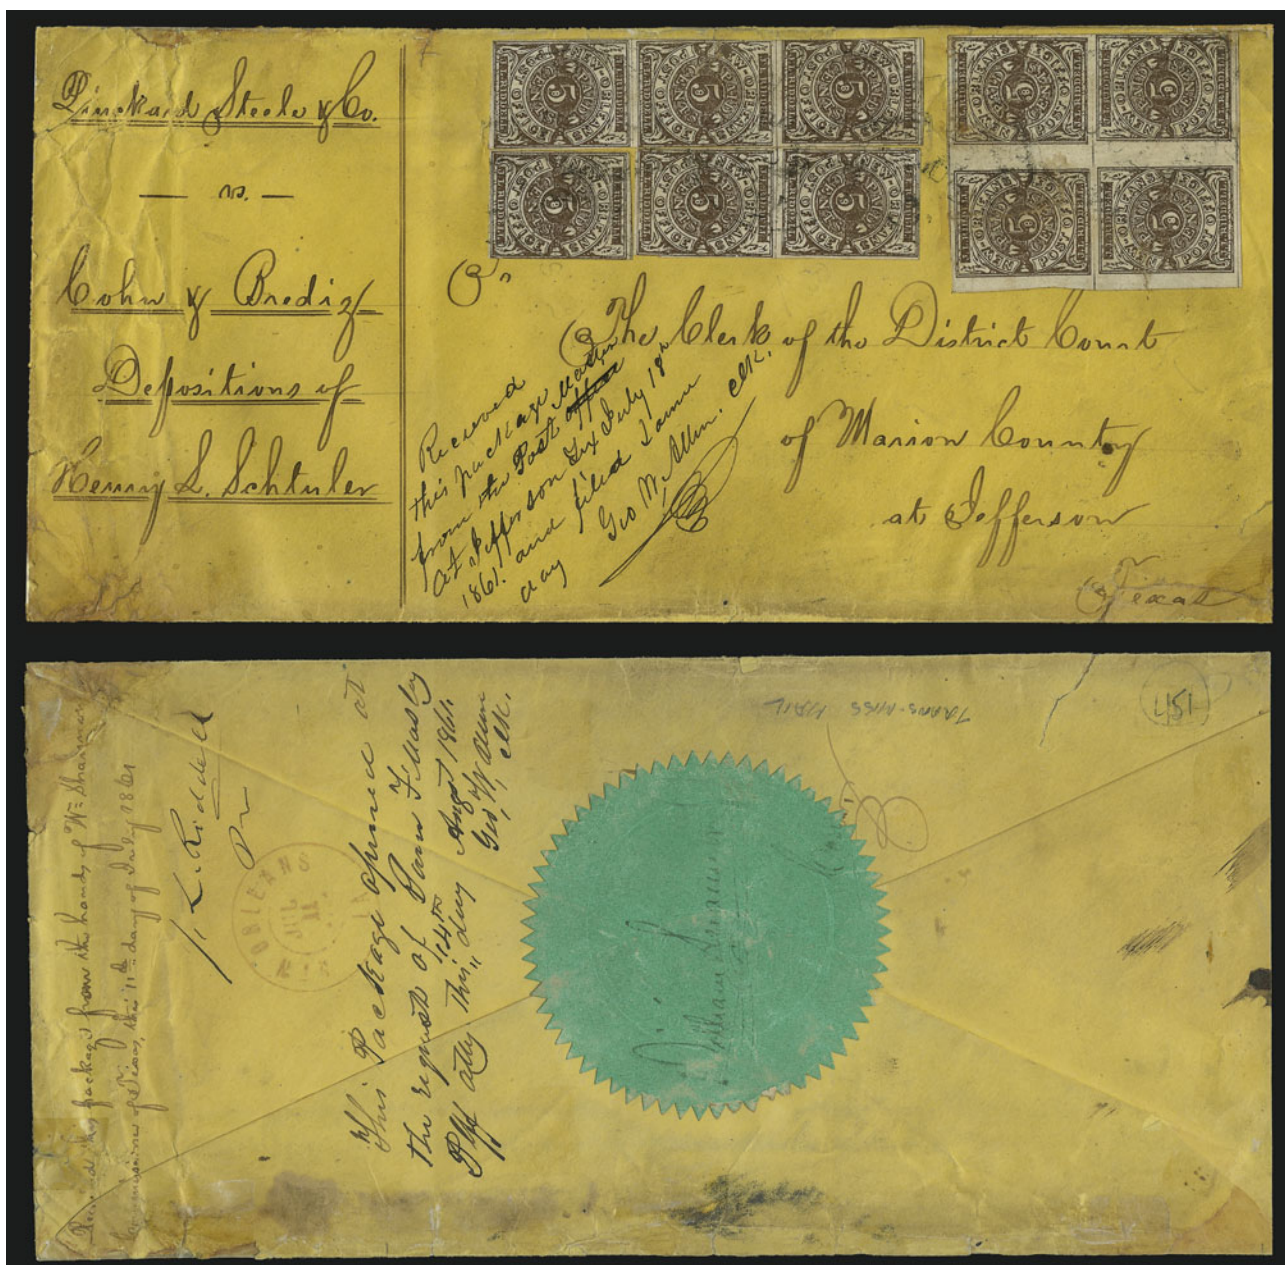 Pinckard Steele & Co.
— vs. —
Cohn & Brediz
Depositions of
Henry L. Schtuler
NEW-ORLEANS POST OFFICE 5 CENTS PAID J.L. RIDDELL P.M.
To
The Clerk of the District Court
of Marion County
at Jefferson
Texas
Recieved
this package Matter
from the Post office
at Jefferson Tex July 18th
1861. and filed same
day Geo W. Allen. clk.
Received this package from the hands of Wm Shannon
Commissioner of Texas, this 11th day of July 1861
J. L. Riddell
Pm
ORLEANS
JUL
11
This Package opened at
the request of Sam F Mosley
Plff Atty this 14th day Augst 1861.
Geo W. Allen
clk.
William Shannon
TRANS-MISS MAIL
151